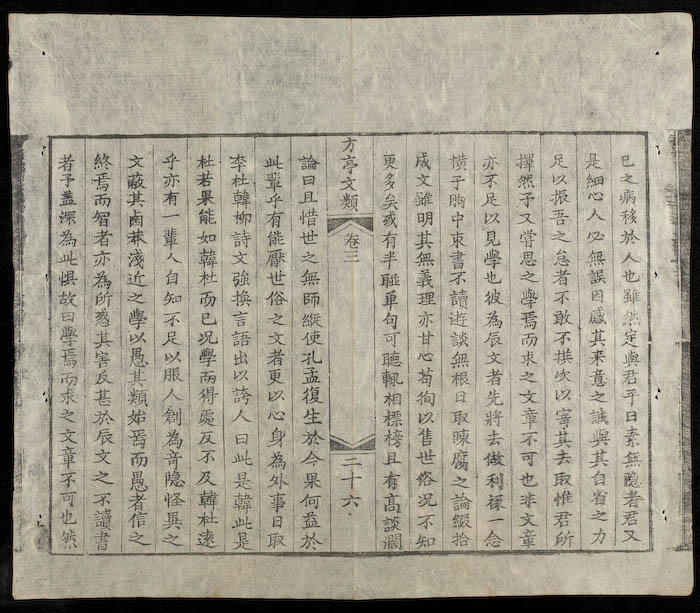 已之病移於人也雖然定與君平日素無隐者君又
是細心人必無誤因感其来意之誠與其自省之力
足以振吾之怠者不敢不撰次以審其去取惟君所
擇然予又甞思之學焉而求之文章不可也非文章
亦不足以見學也彼為辰文者先將去做利祿一念
橫于胸中束書不讀遊談無根日取陳腐之論綴拾
成文雖明其無義理亦甘心苟徇以售世俗况不知
更多矣或有半聯单句可聽輒相標榜且有高談濶
方亭文類 卷三 二十六
論曰且惜世之無師縱使孔孟復生於今果何益於
此輩乎有能厭世俗之文者更以心身為外事日取
李杜韓柳詩文強換言語出以誇人曰此是韓此是
杜若果能如韓杜而已况學而得處反不及韓杜遠
乎亦有一輩人自知不足以服人創為奇隐怪異之
文蔽其鹵莽淺近之學以愚其類始焉而愚者信之
終焉而智者亦為所惑其害反甚於辰文之不讀書
者予盖深為此惧故曰學焉而求之文章不可也然